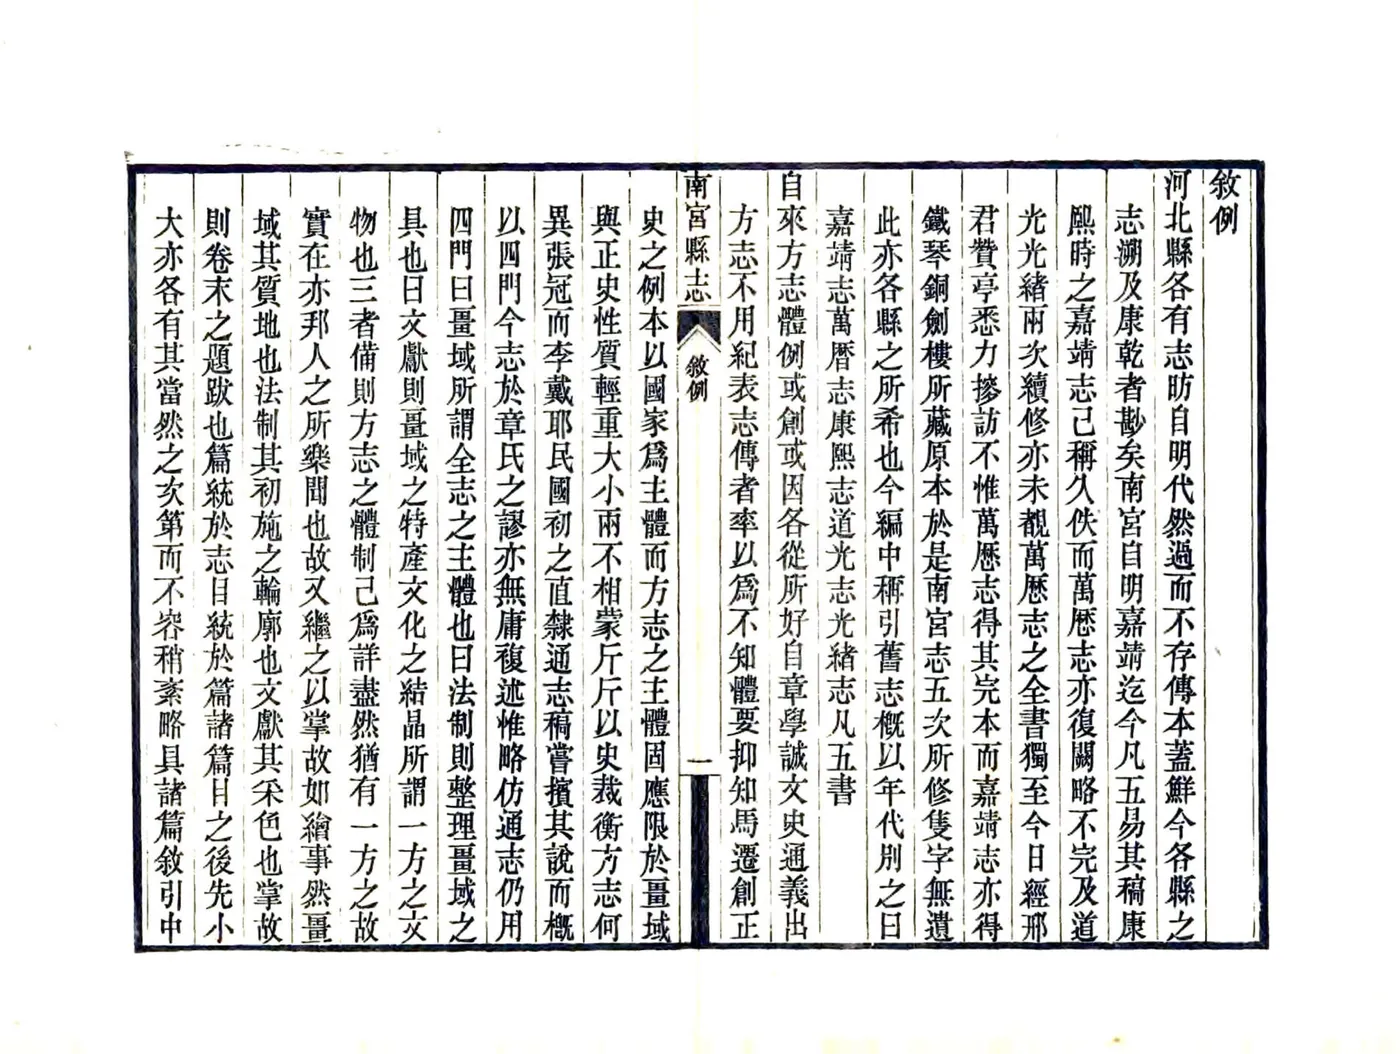 敘例
河北縣各有志昉自明代然過而不存傳本蓋鮮今各縣之
志溯及康乾者尠矣南宮自明嘉靖迄今凡五易其稿康
熙時之嘉靖志己稱久佚而萬厯志亦復闕略不完及道
光光緒兩次續修亦未覩萬厯志之全書獨至今日經邢
君贊亭悉力摻訪不惟萬厯志得其完本而嘉靖志亦得
鐵琴銅劍樓所藏原本於是南宮志五次所修隻字無遺
此亦各縣之所希也今編中稱引舊志槪以年代別之曰
嘉靖志萬厝志康熙志道光志光緒志凡五書
自來方志體例或創或因各從所好自章學誠文史通義出
方志不用紀表志傳者率以爲不知體要抑知馬遷創正
南宮縣志
敘例
一
史之例本以國家爲主體而方志之主體固應限於畺域
與正史性質輕重大小兩不相蒙斤斤以史裁衡方志何
異張冠而李戴耶民國初之直隸通志稿嘗擯其說而槪
以四門今志於章氏之謬亦無庸複述惟略仿通志仍用
四門曰畺域所謂全志之主體也曰法制則整理畺域之
具也曰文獻則畺域之特產文化之結晶所謂一方之文
物也三者備則方志之體制己爲詳盡然猶有一方之故
實在亦邦人之所樂聞也故又繼之以掌故如繪事然畺
域其質地也法制其初施之輪廓也文獻其采色也掌故
則卷末之題跋也篇統於志目統於篇諸篇目之後先小
大亦各有其當然之次第而不容稍紊略具諸篇敘引中